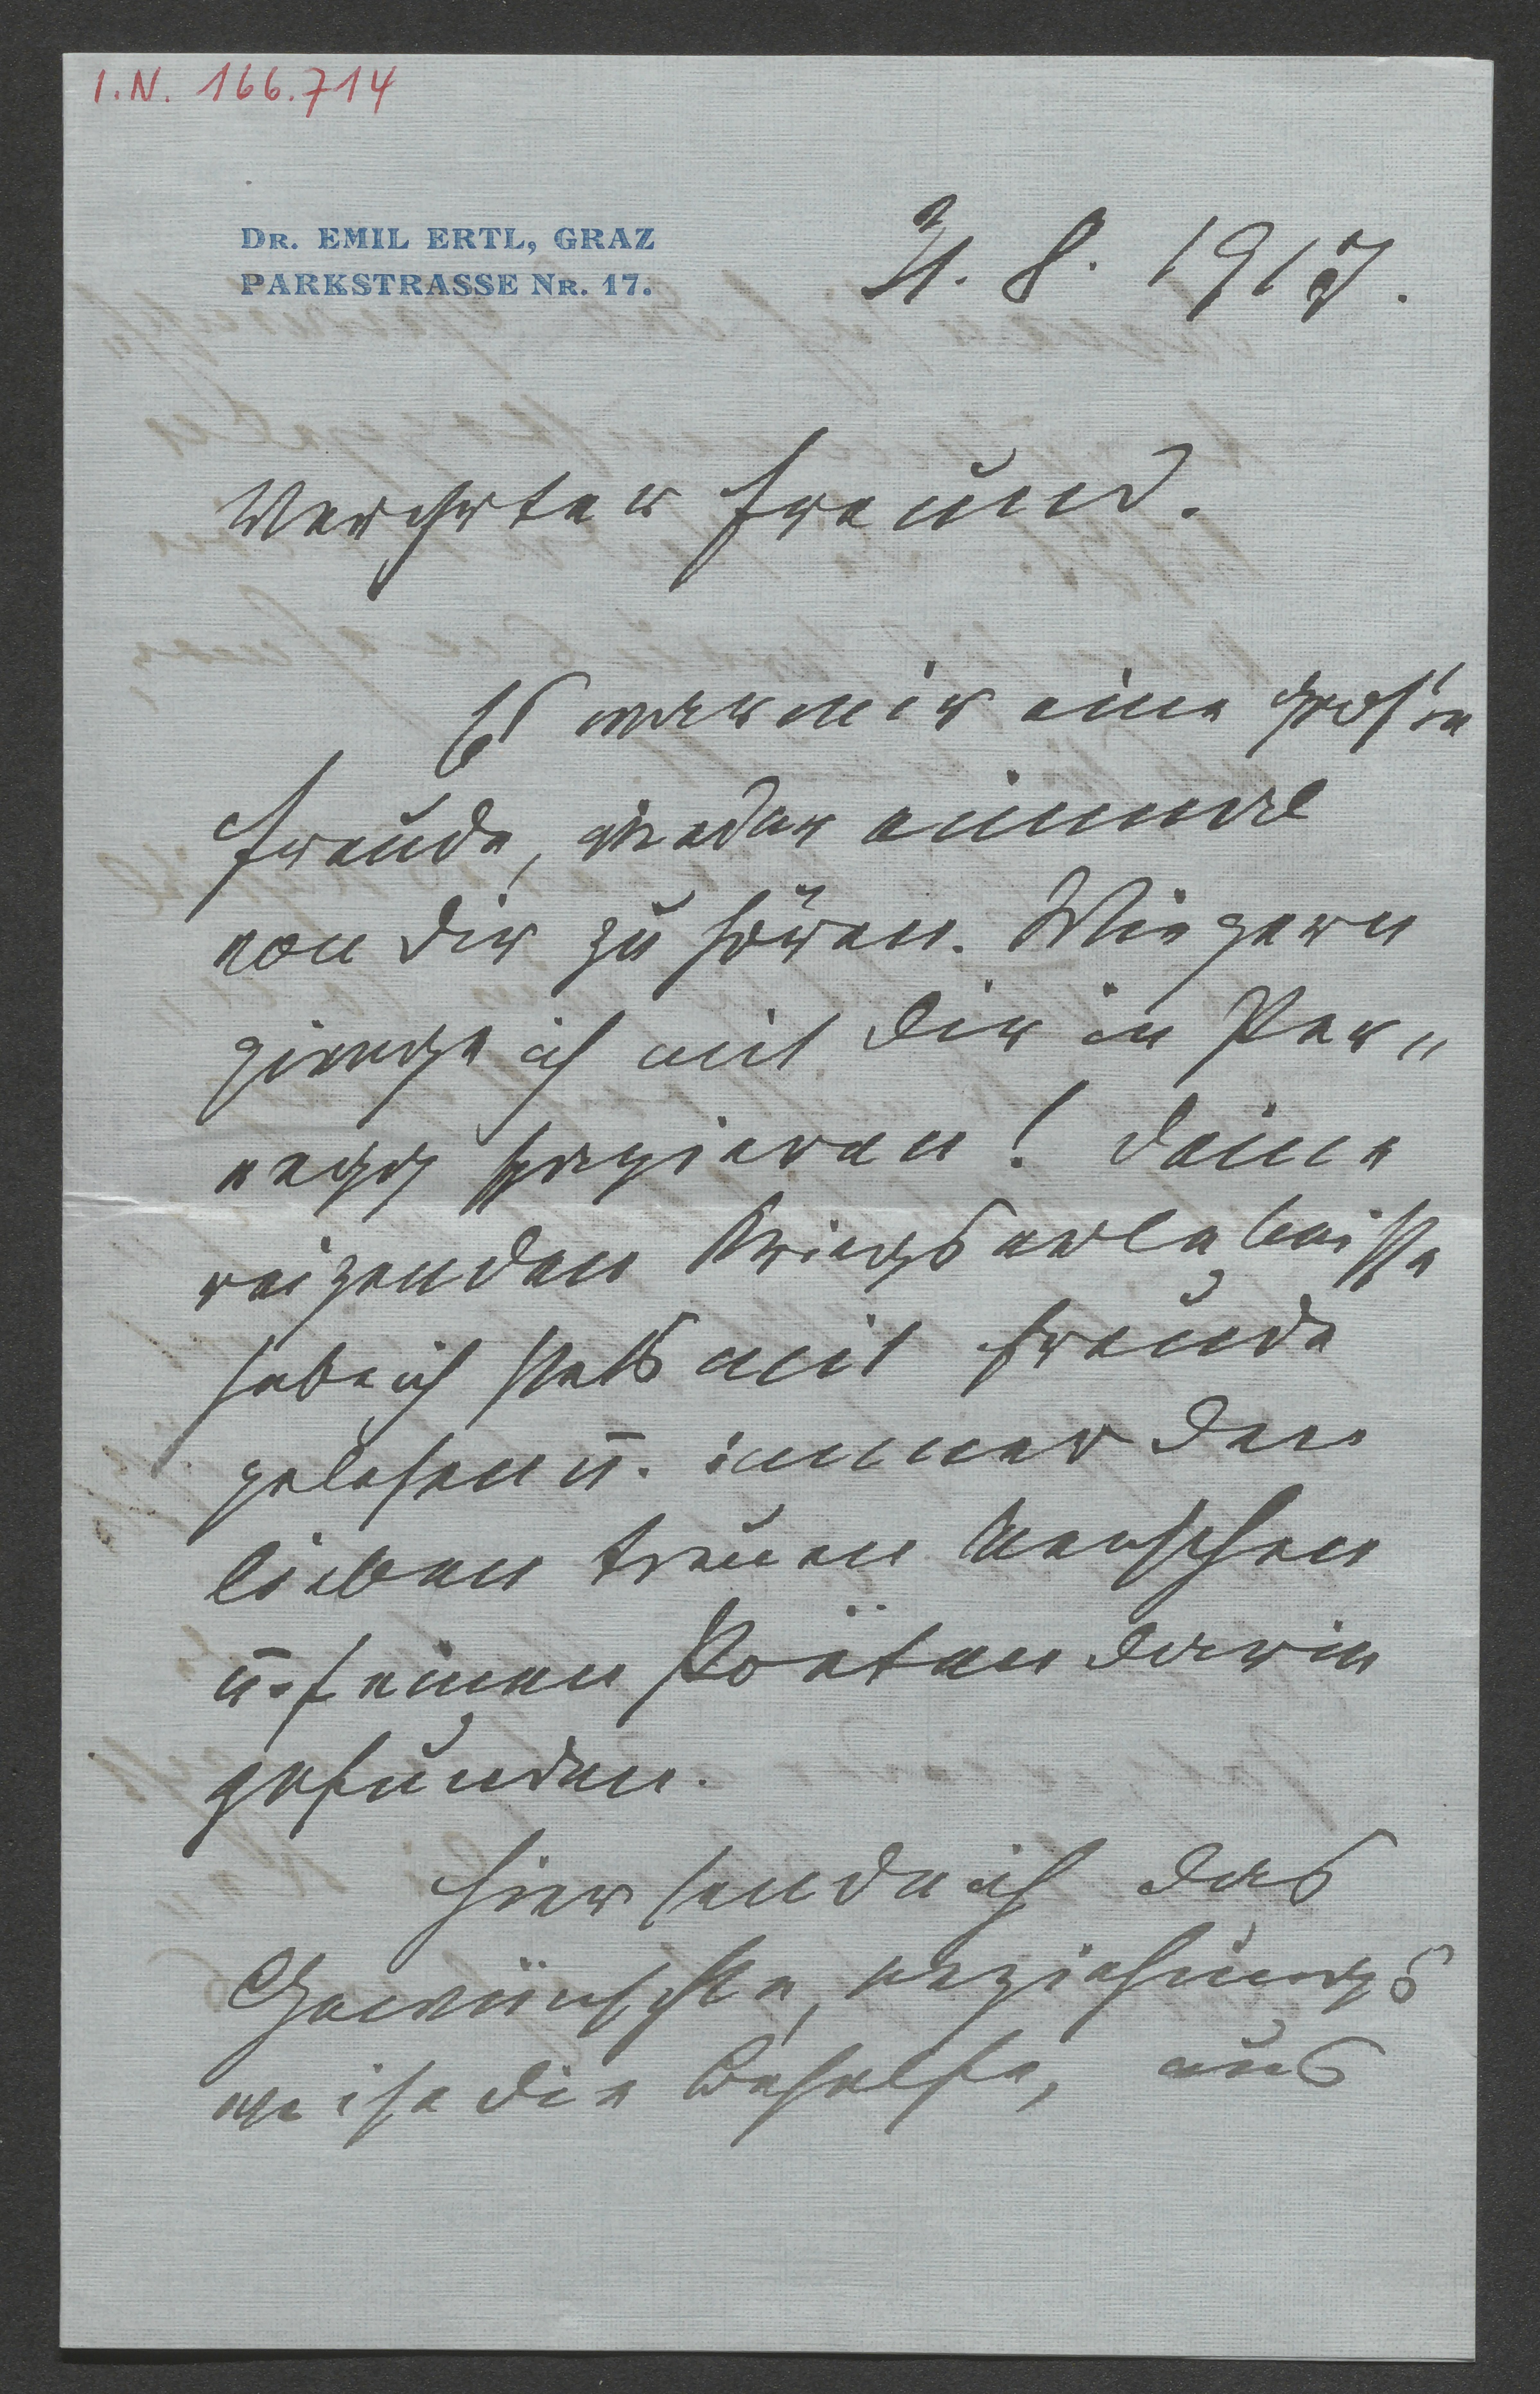 I.N. 166.714
DR. EMIL ERTL, GRAZ
PARKSTRASSE NR. 17.
21. 8. 1917.
Verehrter Freund.
Es war mir eine große
Freude, wieder einmal
von Dir zu hören. Wie gern
ginge ich mit Dir in Per„
negg spazieren! Deine
reizenden Kriegserlebnisse
habe ich stets mit Freude
gelesen u. immer den
lieben treuen Menschen
u. feinen Poëten darin
gefunden.
Hier sende ich das
Gewünschte, beziehungs
weise die Behelfe, aus